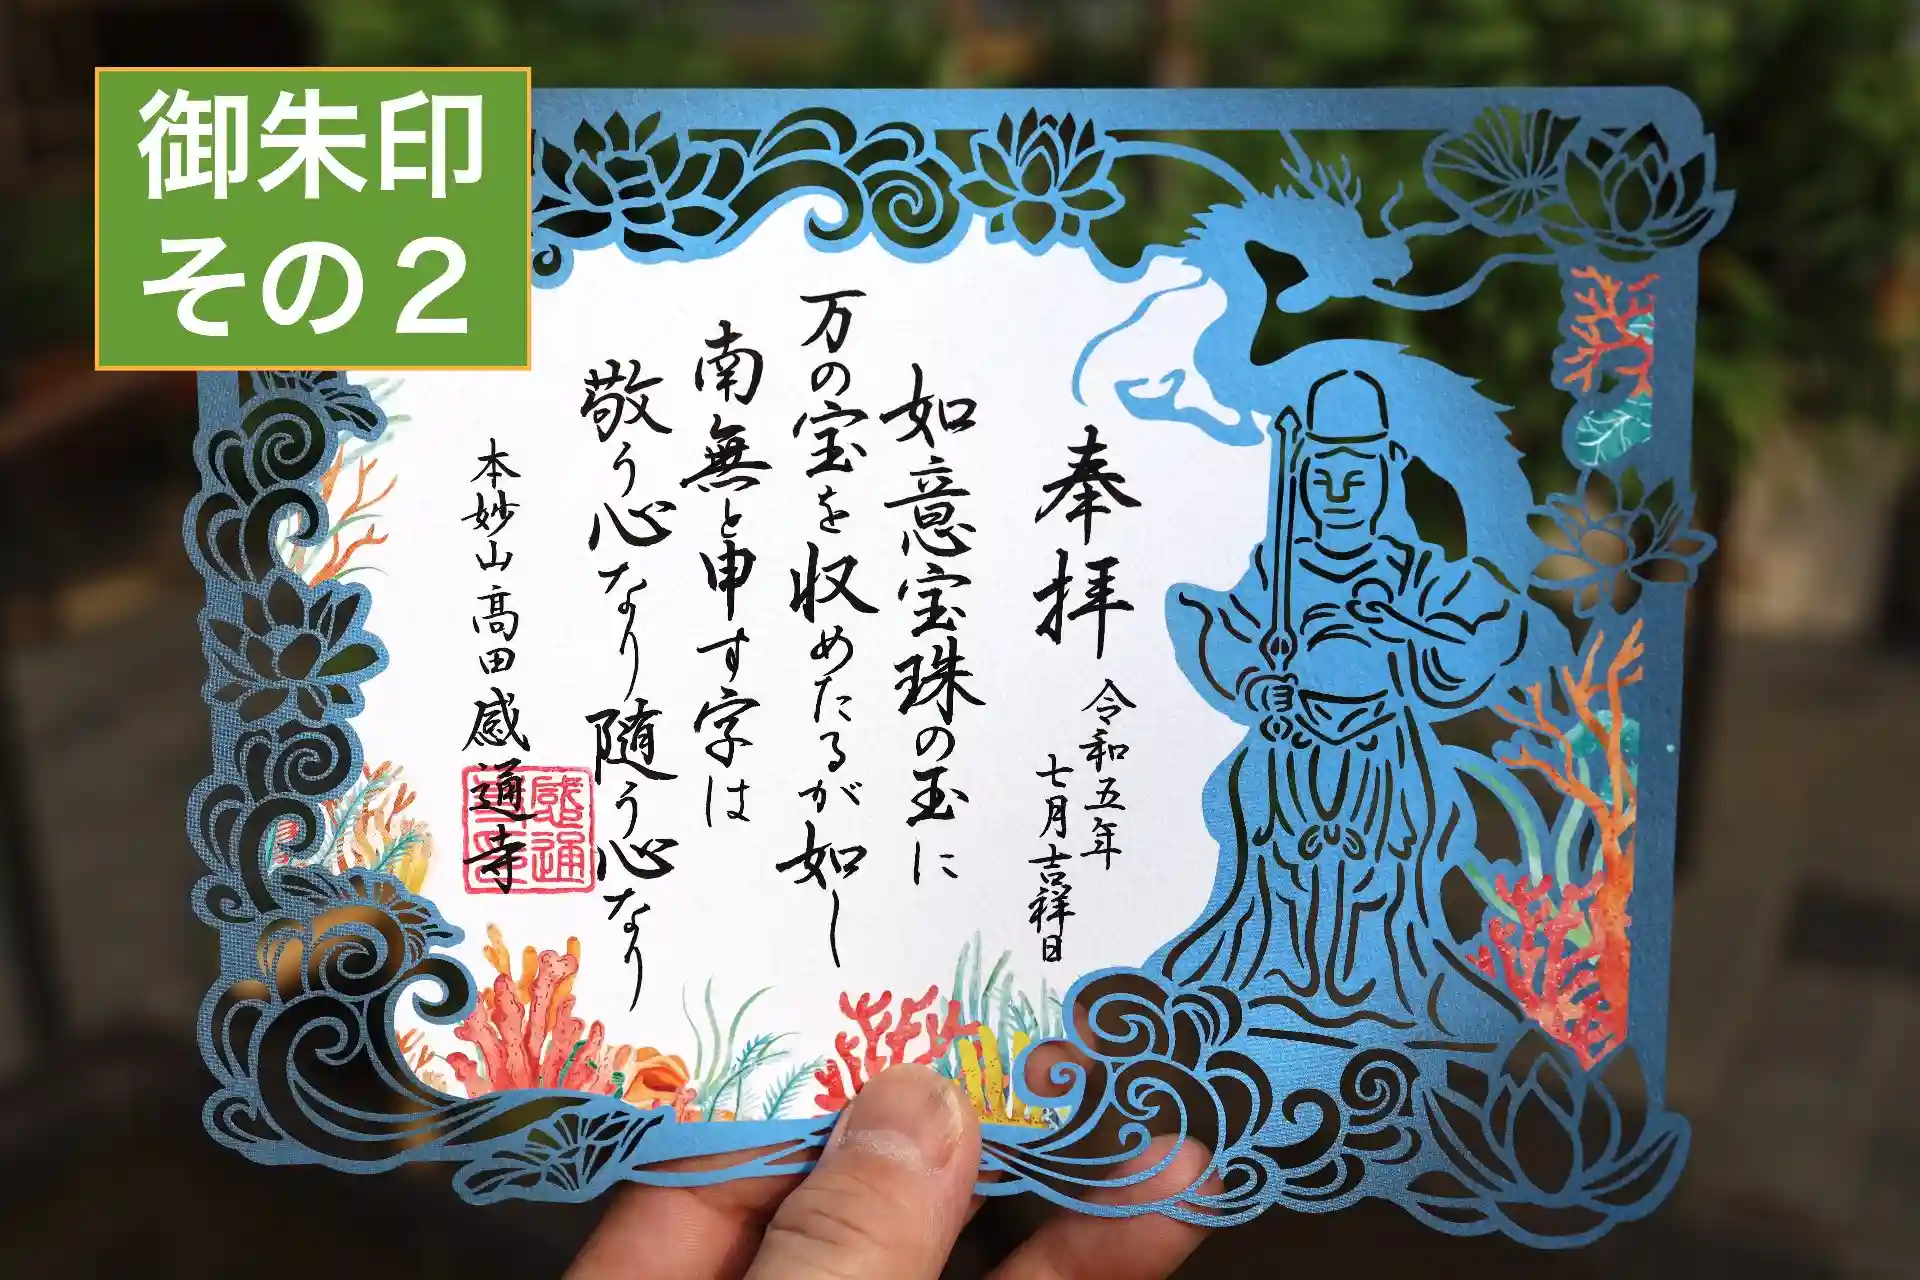 御朱印
その２
奉拝
令和五年
七月吉祥日
如意宝珠の玉に
万の宝を収めたるが如し
南無と申す字は
敬う心なり随う心なり
本妙山高田感通寺
感通